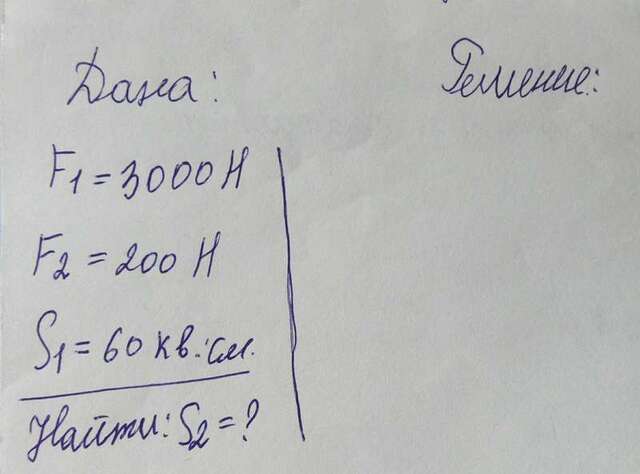 Дано:
Решение:
F1 = 3000 Н
F2 = 200 Н
S1 = 60 кв.см.
Найти: S2 = ?